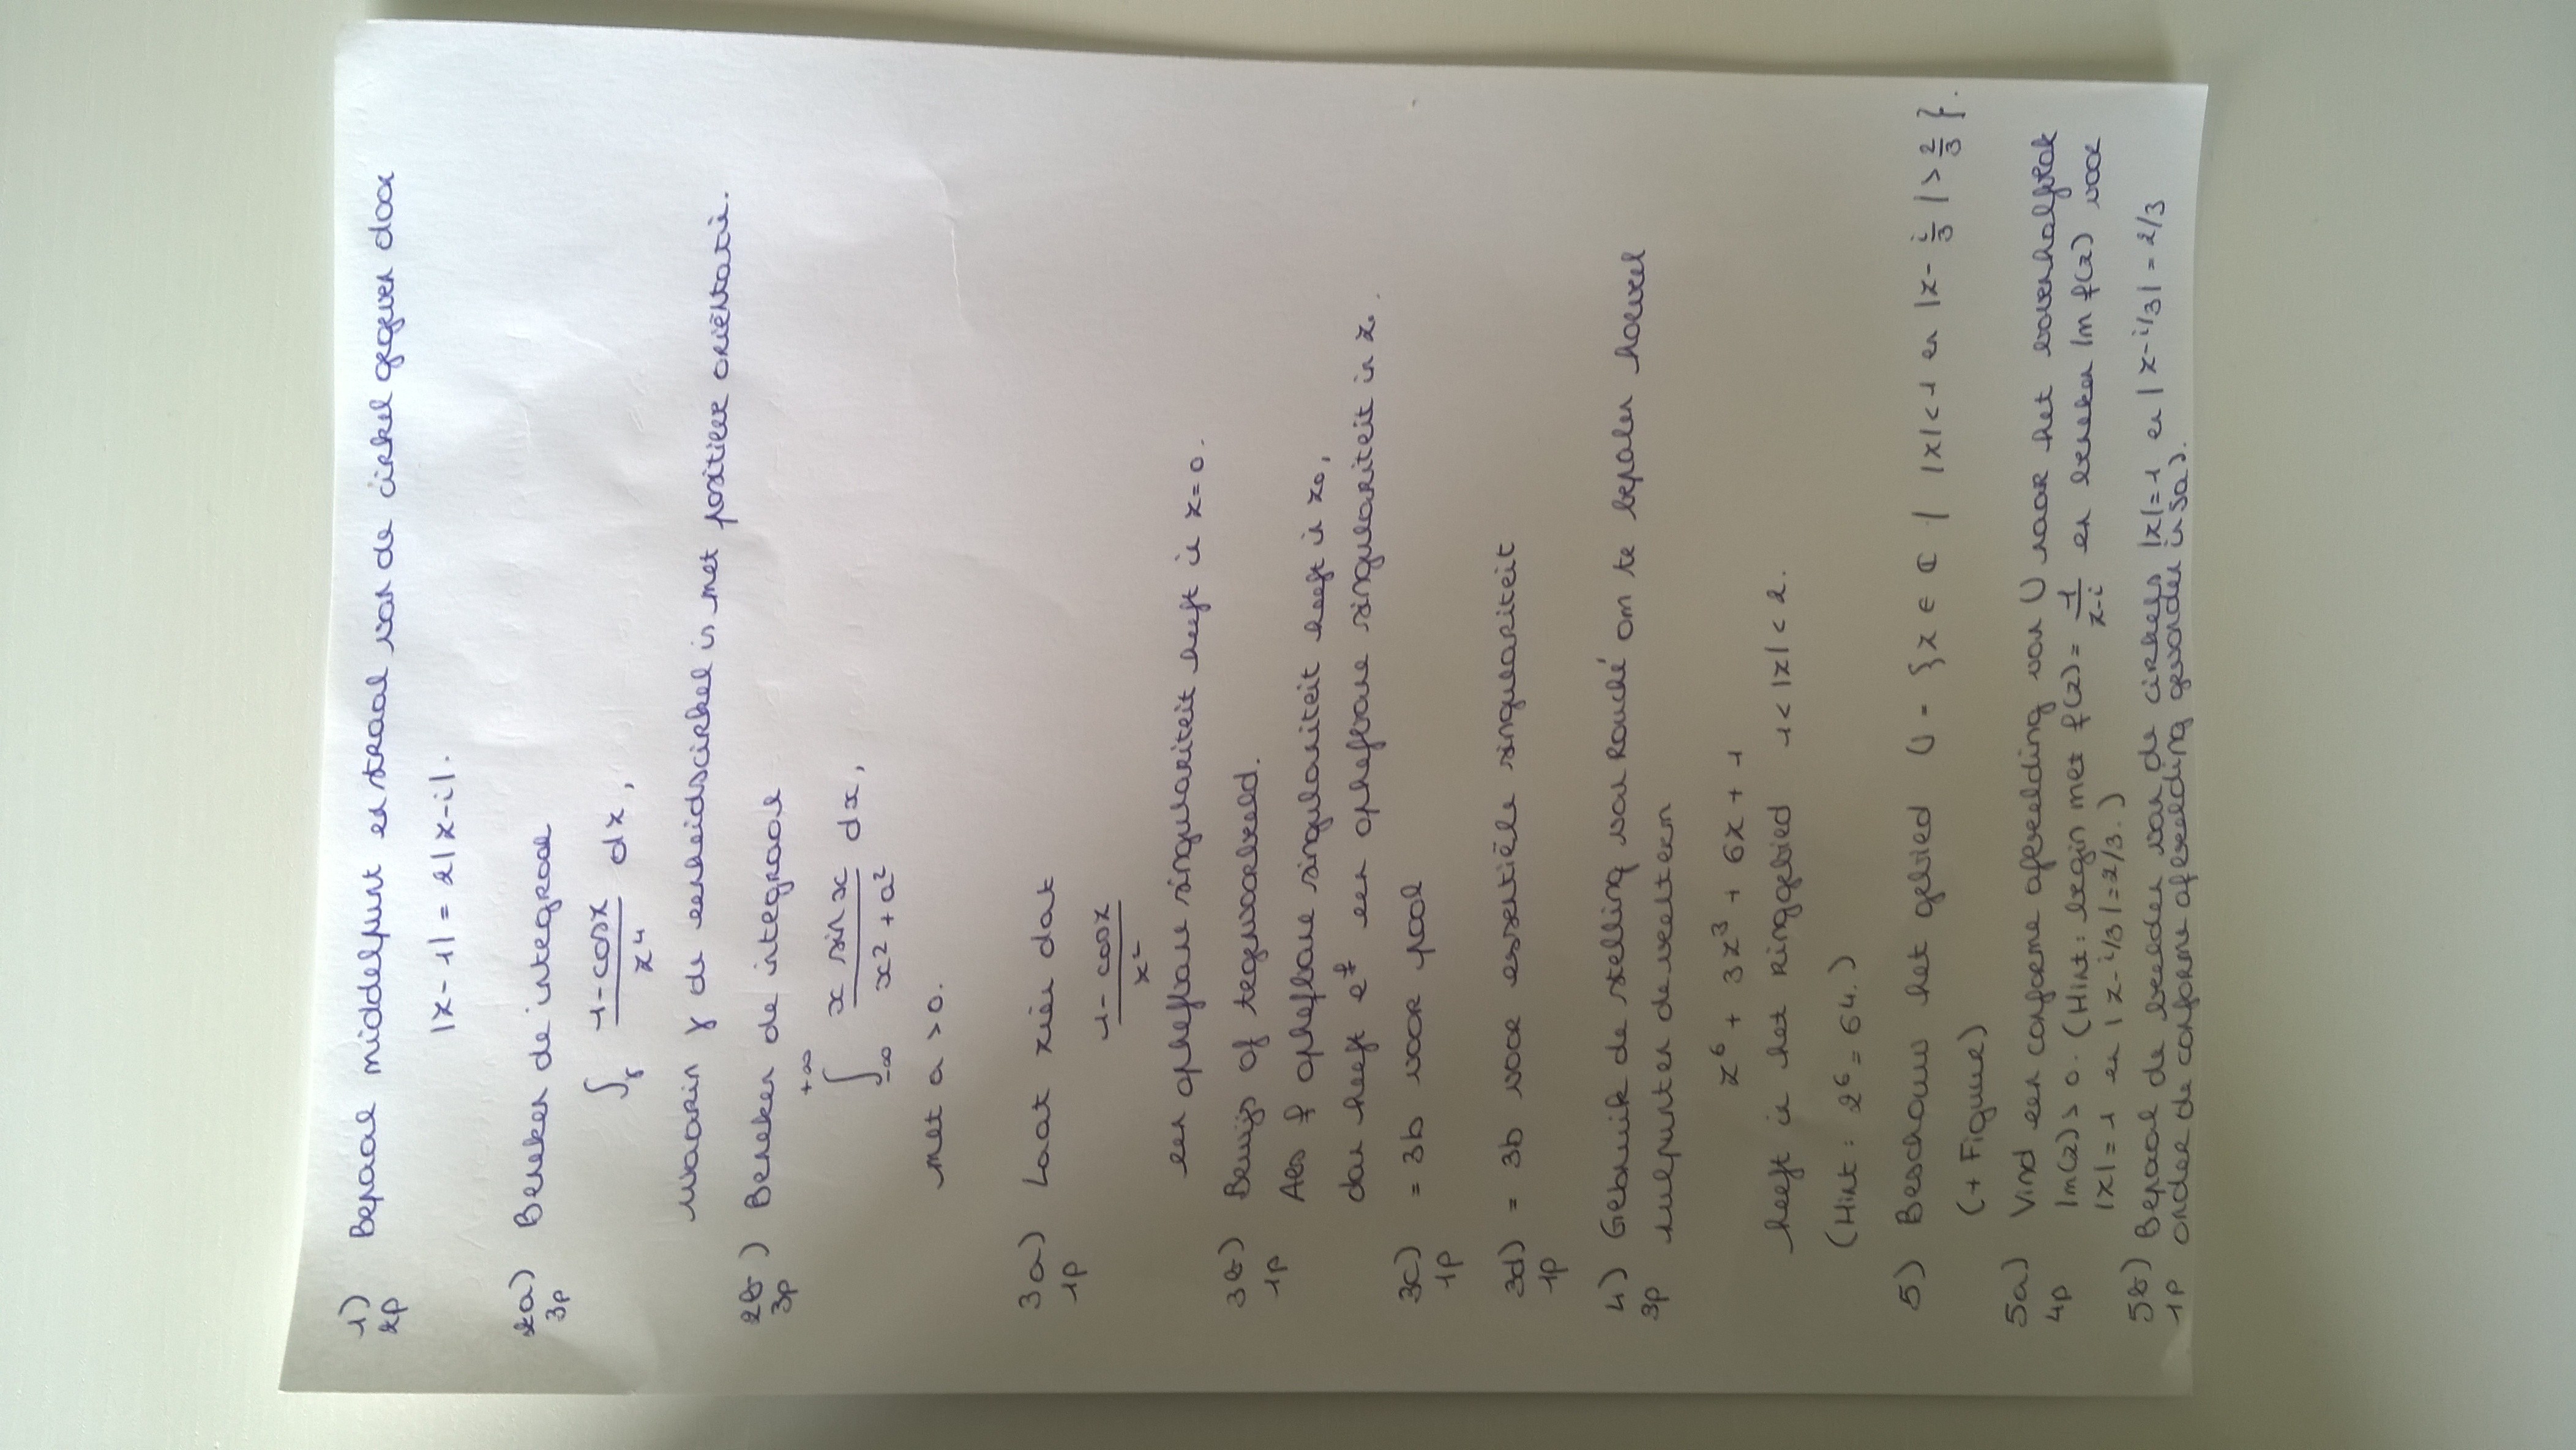 1) Bepaal middelpunt en straal van de cirkel gegeven door
2p
|z-1| = 2|z-i|.
2a) Bereken de integraal
3p
∫_γ (1-cos z)/z⁴ dz,
waarin γ de eenheidscirkel is met positieve oriëntatie.
2b) Bereken de integraal
3p
∫_{-∞}^{+∞} (x sin x)/(x²+a²) dx,
met a>0.
3a) Laat zien dat
1p
(1-cos z)/z²
een ophefbare singulariteit heeft in z=0.
3b) Bewijs of tegenvoorbeeld.
1p Als f ophefbare singulariteit heeft in z₀,
dan heeft e^f een ophefbare singulariteit in z₀.
3c) = 3b voor pool
1p
3d) = 3b voor essentiële singulariteit
1p
4) Gebruik de stelling van Rouché om te bepalen hoeveel
3p nulpunten de veelterm
z⁶ + 3z³ + 6z + 1
heeft in het ringgebied 1<|z|<2.
(Hint: 2⁶=64.)
5) Beschouw het gebied U = {z ∈ ℂ | |z|<1 en |z-i/3|>2/3}.
(+ Figuur)
5a) Vind een conforme afbeelding van U naar het bovenhalfvlak
4p Im(z)>0. (Hint: begin met f(z)=1/(z-i) en bereken Im f(z) voor
|z|=1 en |z-i/3|=2/3.)
5b) Bepaal de beelden van de cirkels |z|=1 en |z-i/3|=2/3
1p onder de conforme afbeelding gevonden in 5a).